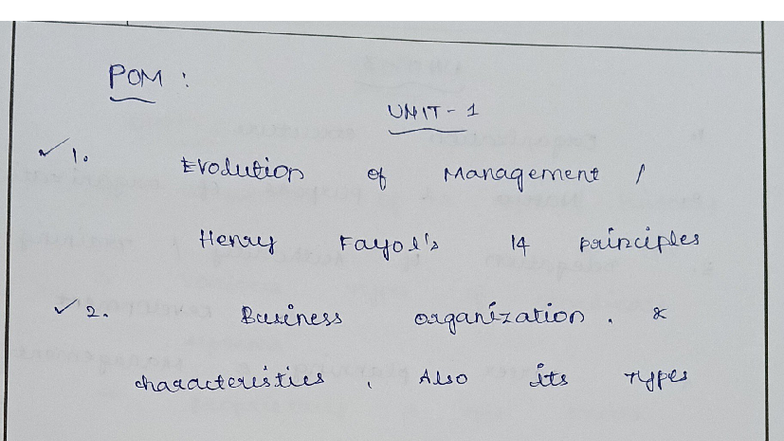 POM :
UNIT - 1
✓ 1. Evolution of Management /
Henry Fayol's 14 principles
✓ 2. Business organization . &
characteristics , Also its Types